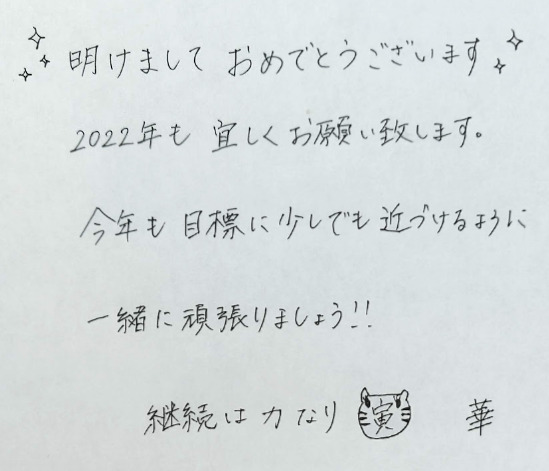 明けまして おめでとうございます
2022年も 宜しくお願い致します。
今年も 目標に少しでも 近づけるように
一緒に 頑張りましょう!!
継続は力なり 寅 華